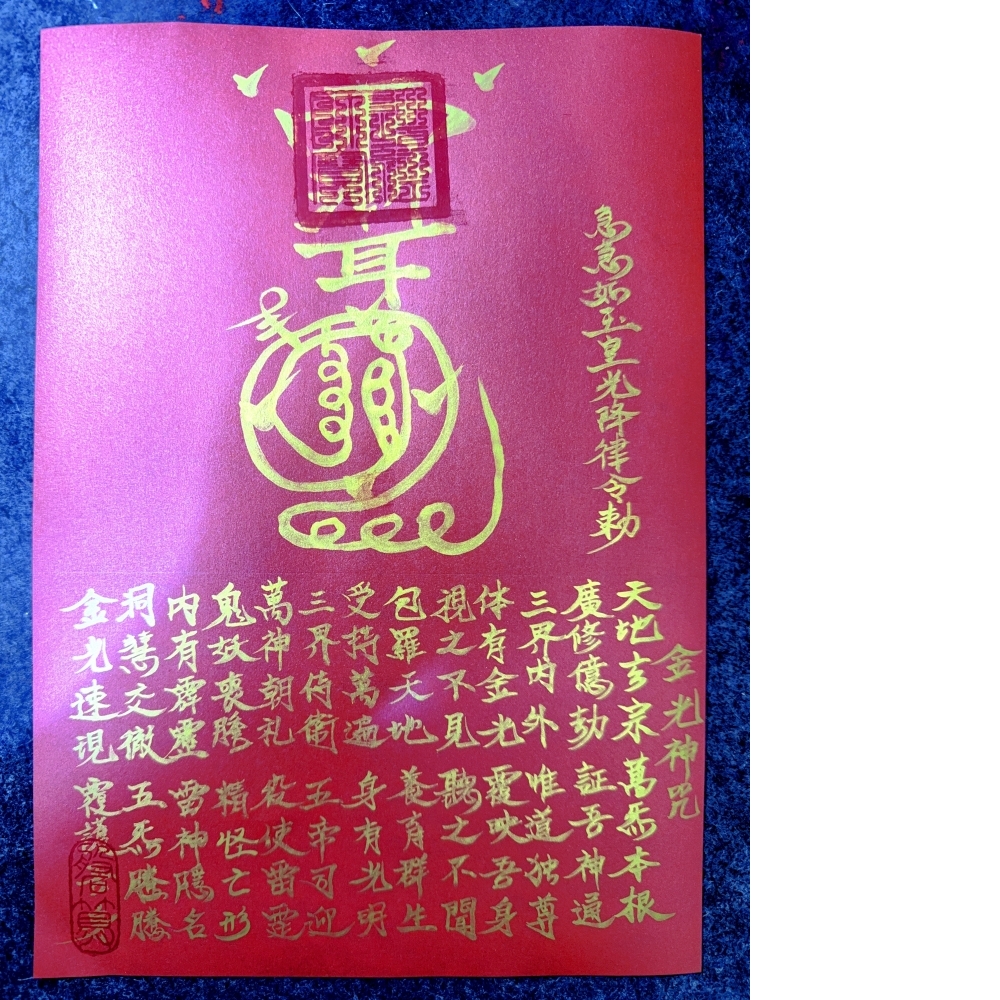 急急如玉皇光降律令勅
金光神咒
天地玄宗 萬炁本根
廣修億劫 証吾神通
三界内外 唯道独尊
体有金光 覆映吾身
視之不見 聽之不聞
包羅天地 養育群生
受持萬遍 身有光明
三界侍衛 五帝司迎
萬神朝礼 役使雷霆
鬼妖喪膽 精怪亡形
内有霹靂 雷神隱名
洞慧交徹 五炁騰騰
金光速現 覆護